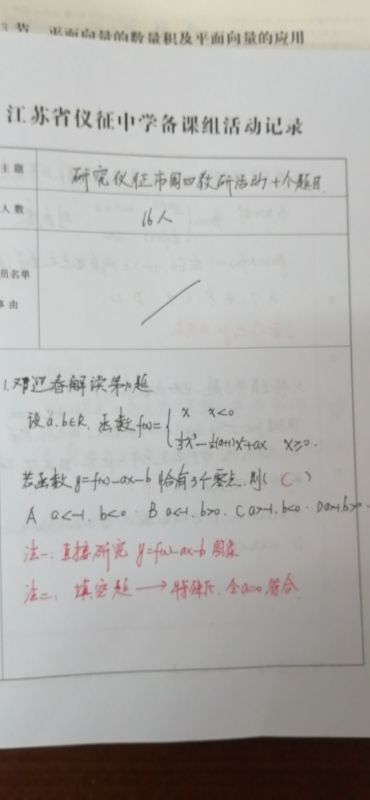 节 平面向量的数量积及平面向量的应用
江苏省仪征中学备课组活动记录
主题 研究仪征市周四教研活动十个题目.
人数 16人
员名单
事由
1.邓迎春解读第10题
设a.b∈R. 函数f(x)={ x x<0
1/3x³-1/2(a+1)x²+ax x≥0.
若函数 y=f(x)-ax-b 恰有3个零点.则( C )
A a<-1. b<0 · B a<-1. b>0. C a>-1. b<0 · D a>-1 b>0
法一:直接研究 y=f(x)-ax-b 图象
法二: 填空题 → 特殊化. 令a=0.符合.